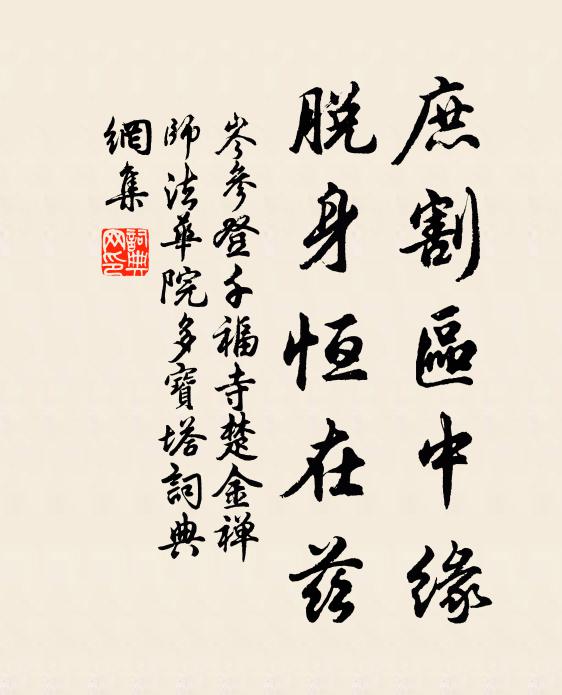 庶割區中緣
脱身恒在兹
岑參登千福寺楚金禅
師法華院多寶塔詞典
網集
詞典
网印